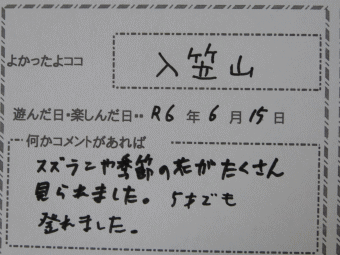 よかったよココ 入笠山
遊んだ日・楽しんだ日‥ R6 年 6 月 15 日
何かコメントがあれば
スズランや季節の花がたくさん
見られました。 5才でも
登れました。